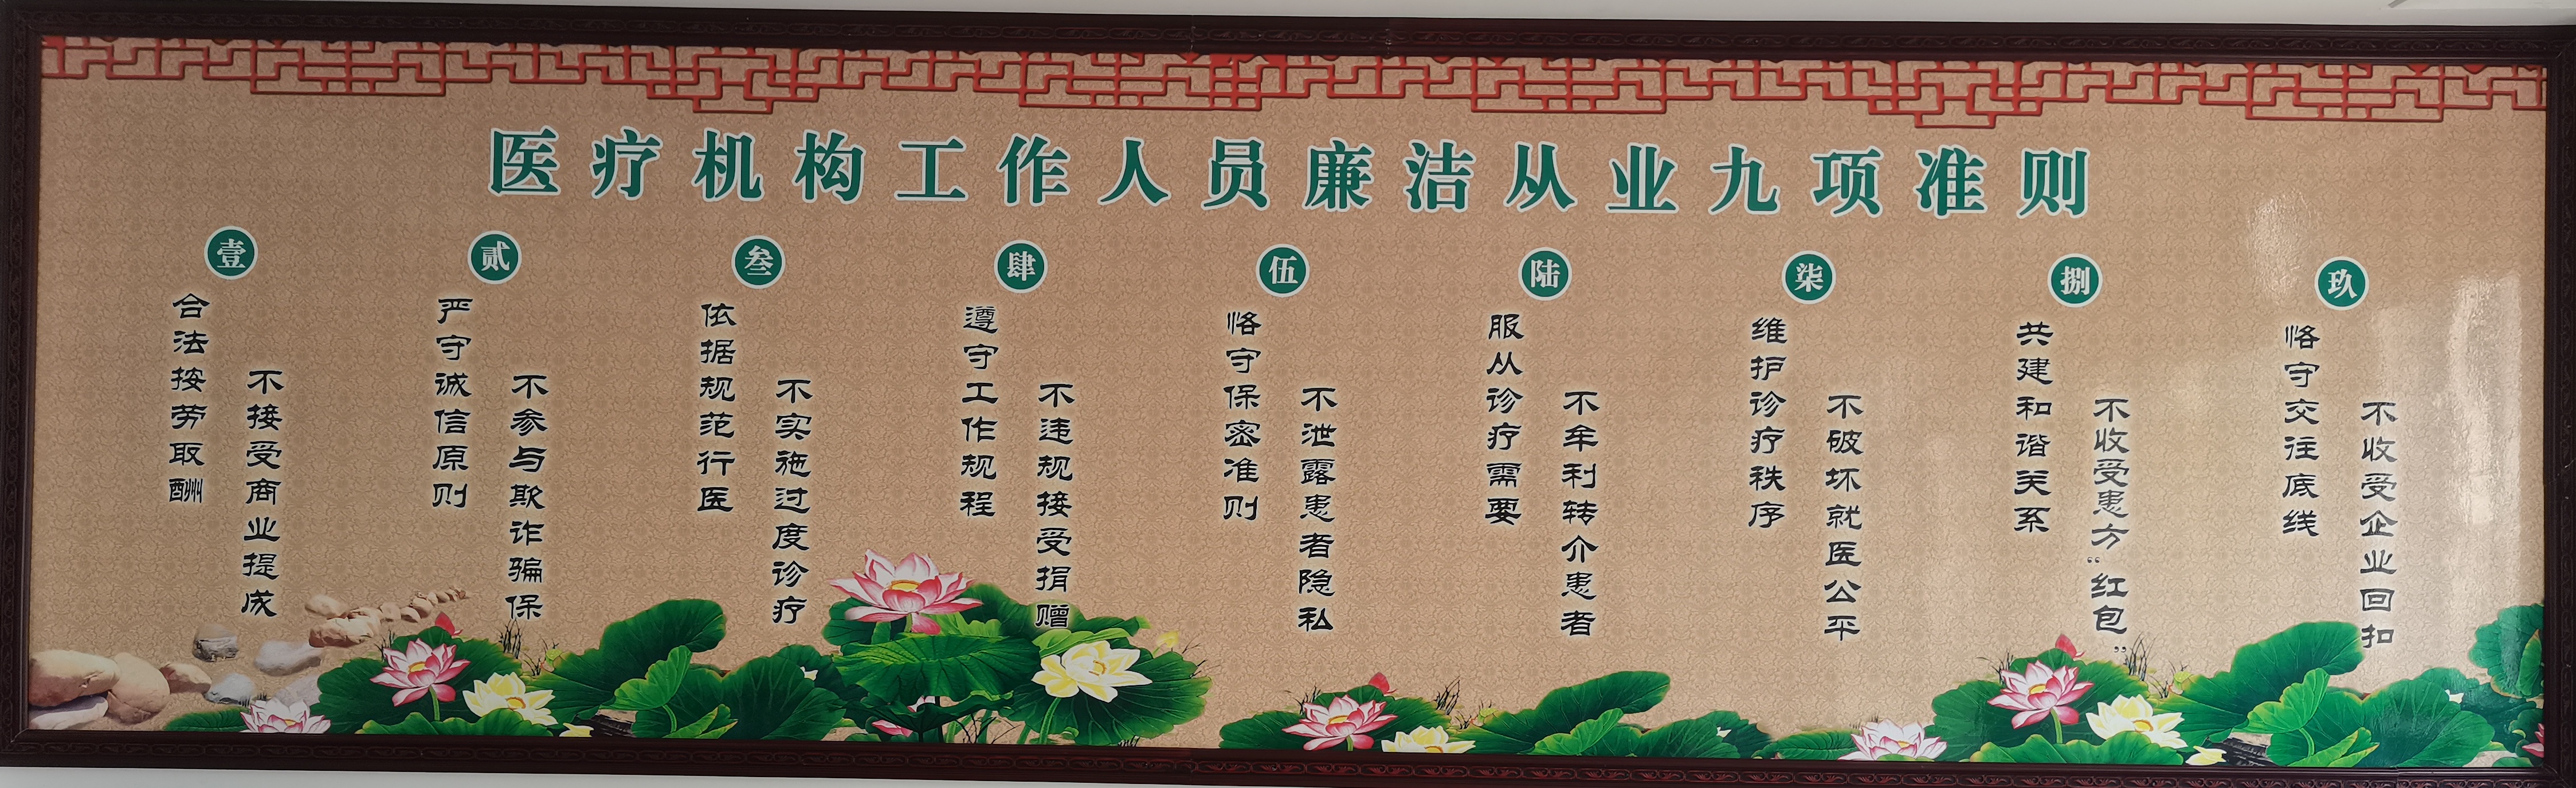 医疗机构工作人员廉洁从业九项准则
壹
合法按劳取酬
不接受商业提成
贰
严守诚信原则
不参与欺诈骗保
叁
依据规范行医
不实施过度诊疗
肆
遵守工作规程
不违规接受捐赠
伍
恪守保密准则
不泄露患者隐私
陆
服从诊疗需要
不牟利转介患者
柒
维护诊疗秩序
不破坏就医公平
捌
共建和谐关系
不收受患方“红包”
玖
恪守交往底线
不收受企业回扣